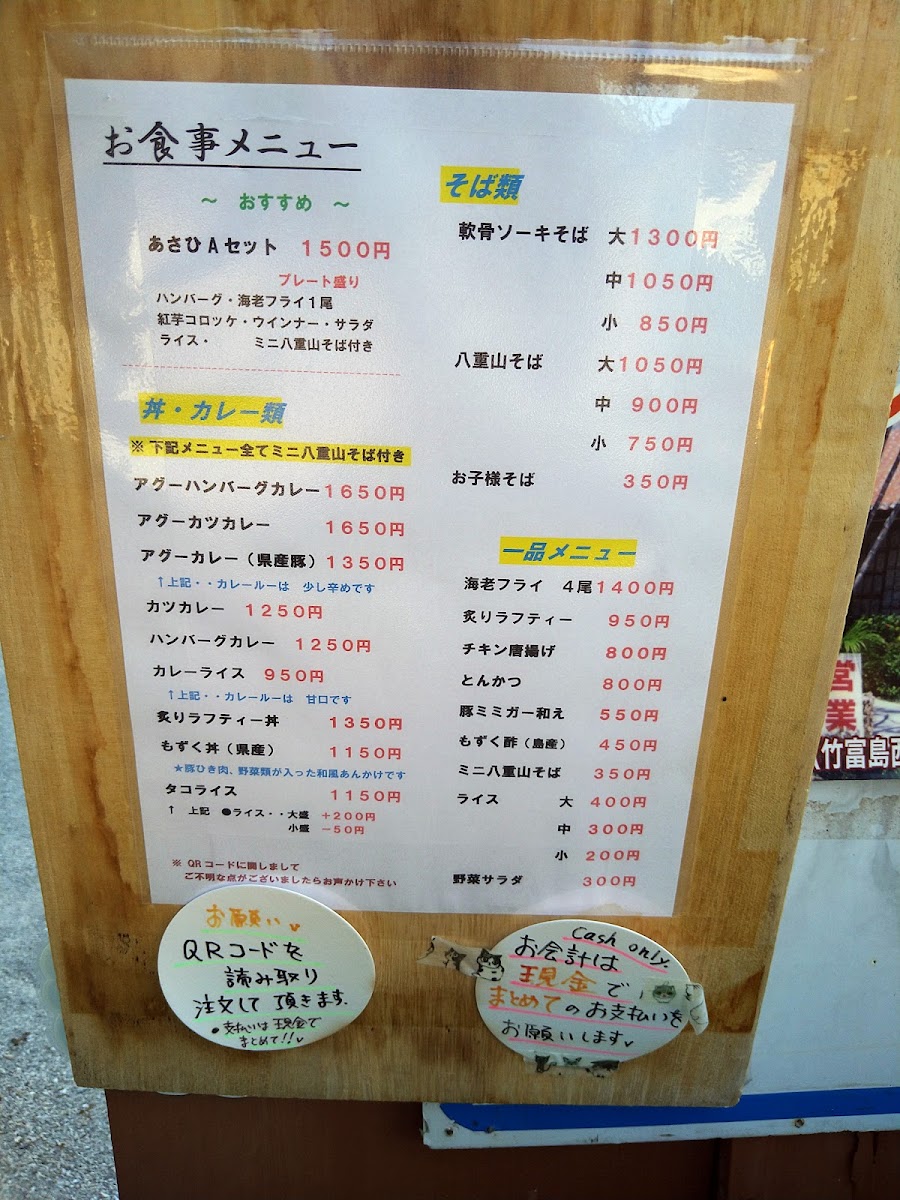 お食事メニュー
～ おすすめ ～
あさひAセット 1500円
プレート盛り
ハンバーグ・海老フライ1尾
紅芋コロッケ・ウインナー・サラダ
ライス・ ミニ八重山そば付き
丼・カレー類
※下記メニュー全てミニ八重山そば付き
アグーハンバーグカレー 1650円
アグーカツカレー 1650円
アグーカレー（県産豚） 1350円
↑上記・・カレールーは 少し辛めです
カツカレー 1250円
ハンバーグカレー 1250円
カレーライス 950円
↑上記・・カレールーは 甘口です
炙りラフティー丼 1350円
もずく丼（県産） 1150円
★豚ひき肉、野菜類が入った和風あんかけです
タコライス 1150円
↑ 上記 ●ライス・・大盛 +200円
小盛 -50円
※ QRコードに関しまして
ご不明な点がございましたらお声かけ下さい
そば類
軟骨ソーキそば 大1300円
中1050円
小 850円
八重山そば 大1050円
中 900円
小 750円
お子様そば 350円
一品メニュー
海老フライ 4尾1400円
炙りラフティー 950円
チキン唐揚げ 800円
とんかつ 800円
豚ミミガー和え 550円
もずく酢（島産） 450円
ミニ八重山そば 350円
ライス 大 400円
中 300円
小 200円
野菜サラダ 300円
お願い
QRコードを
読み取り
注文して頂きます。
●支払いは現金で
まとめて!!
cash only.
お会計は
現金で
まとめてのお支払いを
お願いします
営業
竹富島西